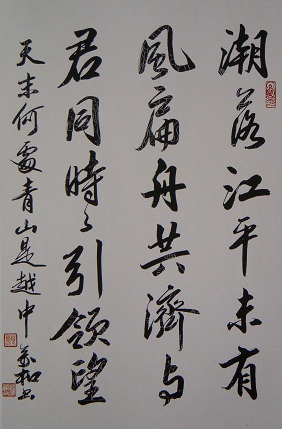 潮落江平未有
風扁舟共濟与
君同時々引領望
天末何處青山是越中